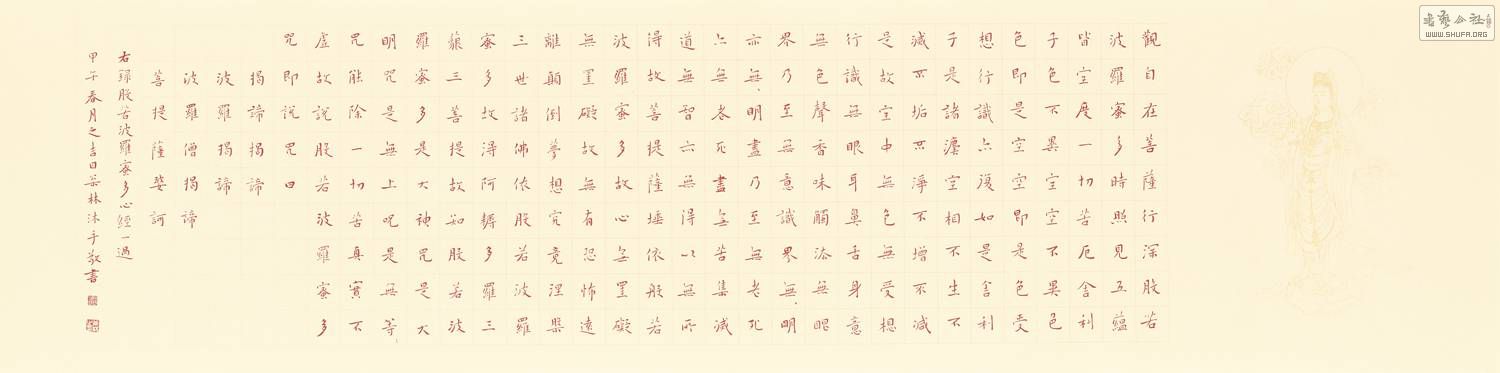 觀自在菩薩行深般若
波羅蜜多時照見五蘊
皆空度一切苦厄舍利
子色不異空空不異色
色即是空空即是色受
想行識亦復如是舍利
子是諸法空相不生不
滅不垢不淨不增不減
是故空中無色無受想
行識無眼耳鼻舌身意
無色聲香味觸法無眼
界乃至無意識界無明
亦無明盡乃至無老死
亦無老死盡無苦集滅
道無智亦無得以無所
得故菩提薩埵依般若
波羅蜜多故心無罣礙
無罣礙故無有恐怖遠
離顛倒夢想究竟涅槃
三世諸佛依般若波羅
蜜多故得阿耨多羅三
藐三菩提故知般若波
羅蜜多是大神咒是大
明咒是無上咒是無等
咒能除一切苦真實不
虛故說般若波羅蜜多
咒即說咒曰
揭諦揭諦
波羅揭諦
波羅僧揭諦
菩提薩婆訶
右錄般若波羅蜜多心經一過
甲午春月之吉日林沐手敬書
WWW.SHUFA.ORG